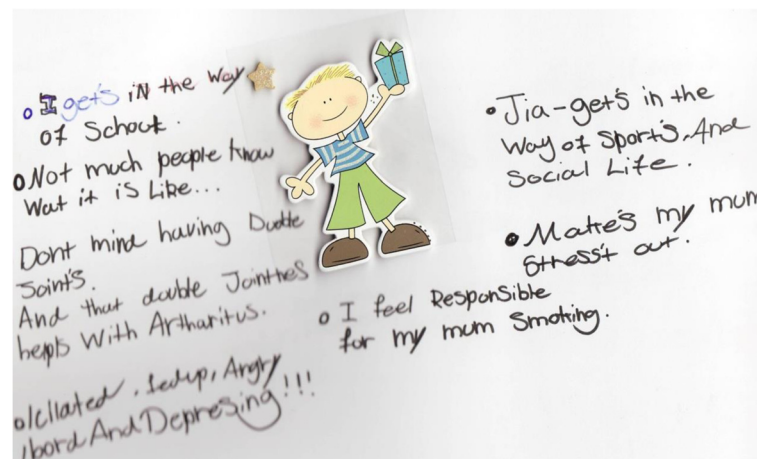 I gets iN the Way
of School.
Not much people know
Wat it is Like...
Dont mind having Duoble
Joint's.
And that double Jointnes
helps With Artharitus.
Icilated, fedup, Angry
bord And Depresing!!!
Jia-get's in the
Way of Sport's. And
Social Life.
Make's my mum
Stress't out.
I feel Responsible
for my mum Smoking.